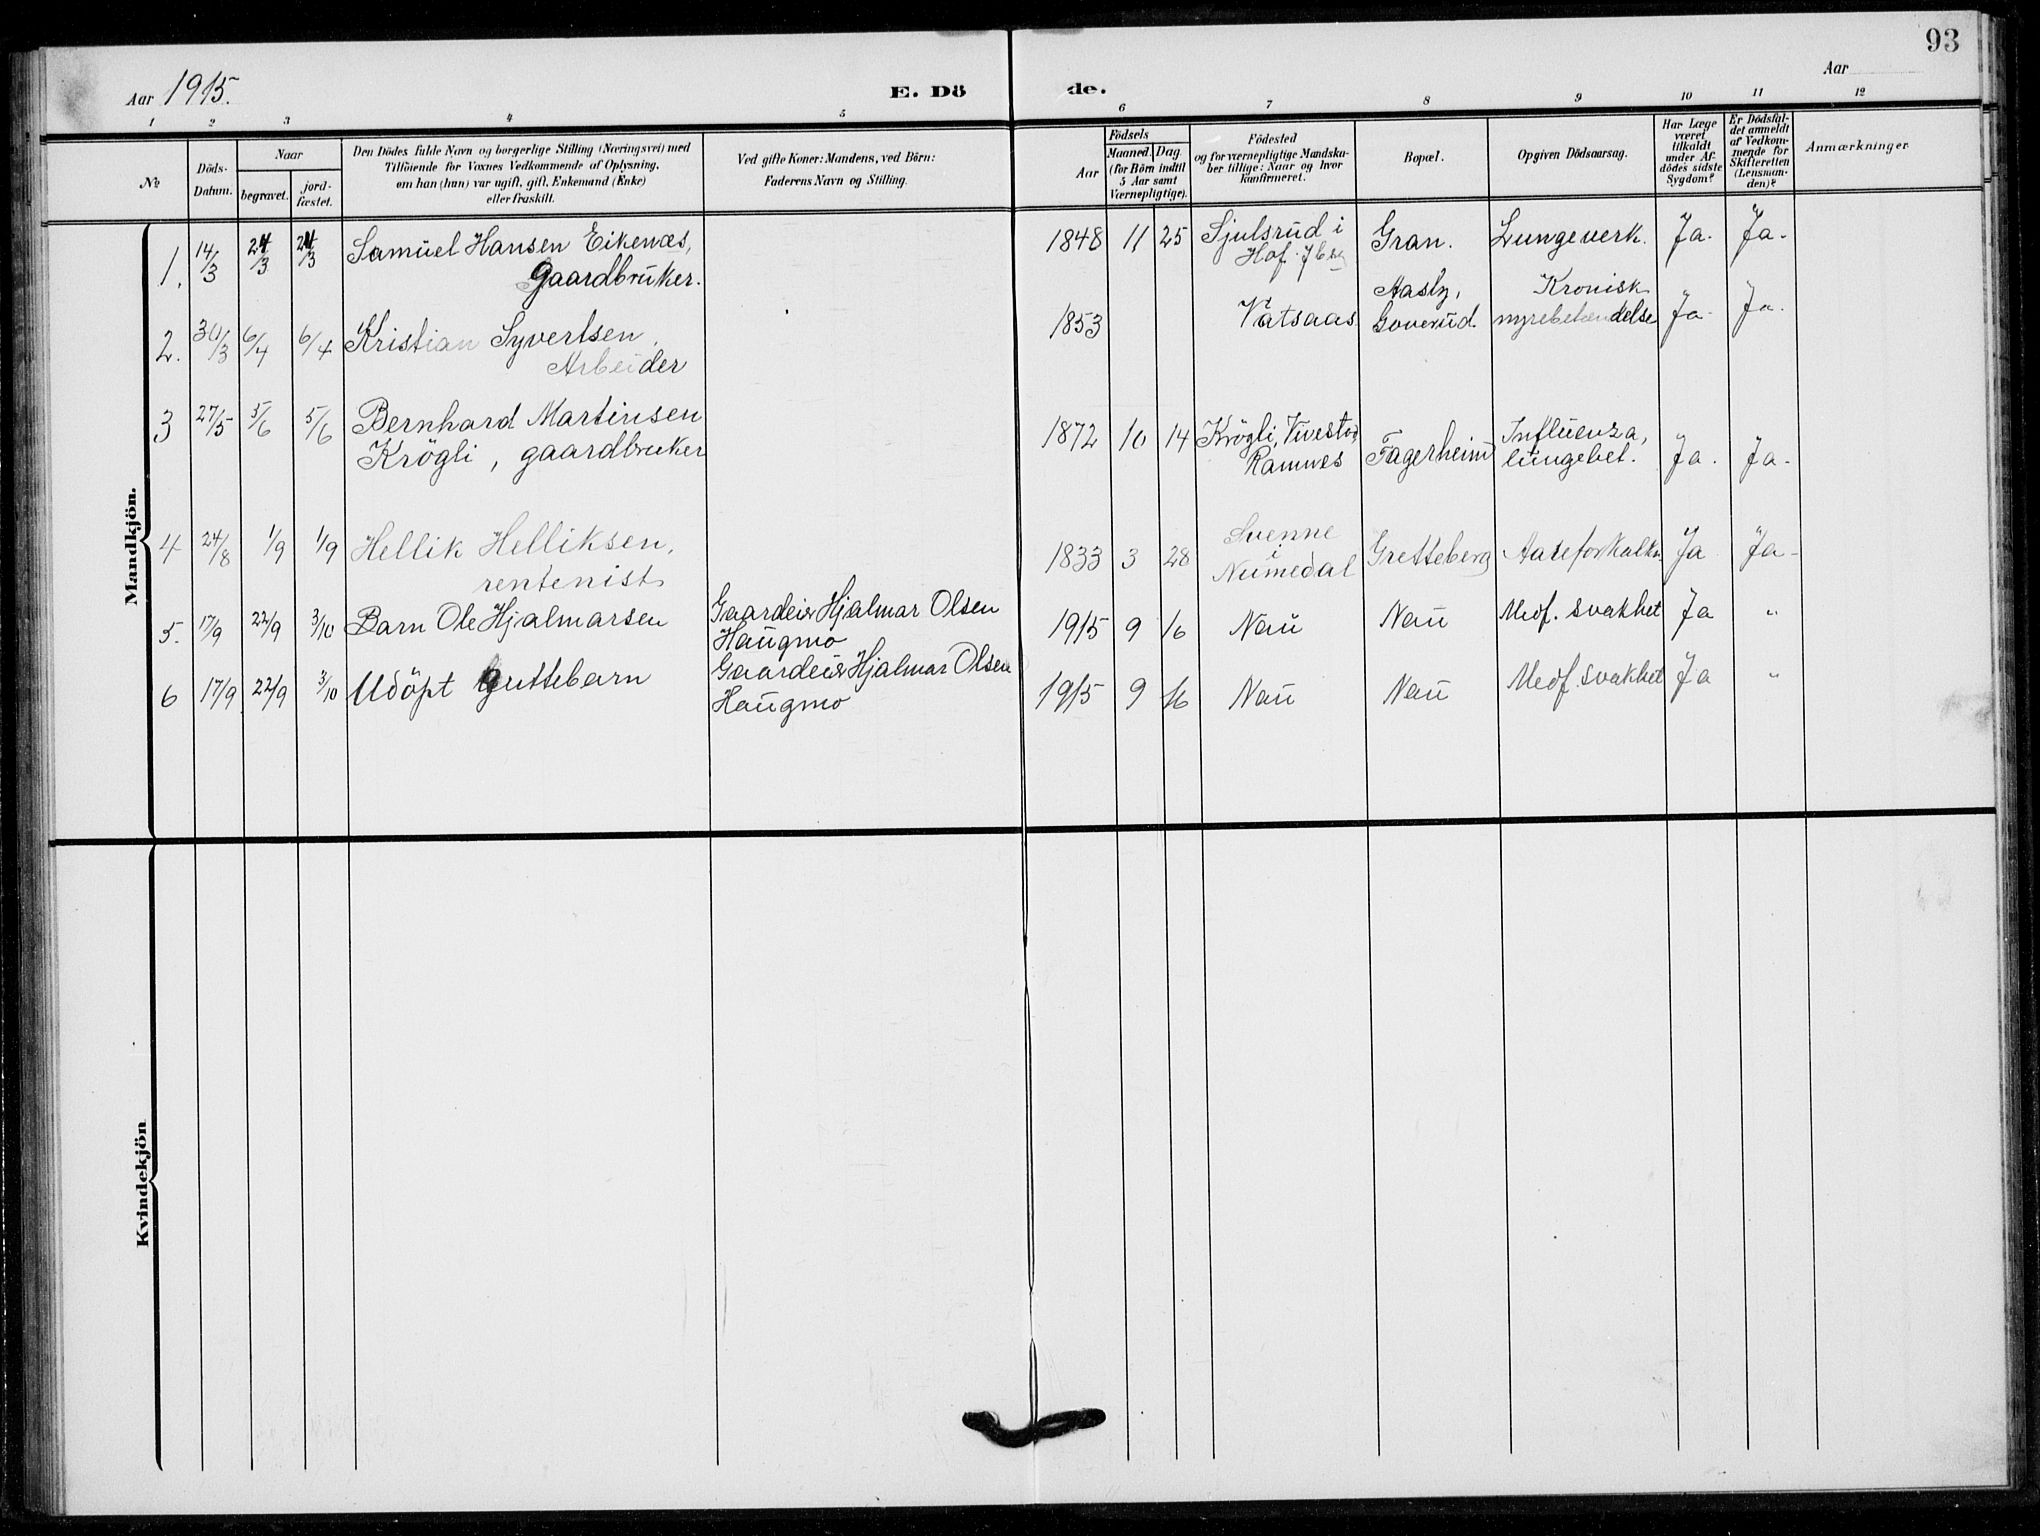 93
Aar 1915.
E. Dö de.
Aar
1 2 3 4 5 6 7 8 9 10 11 12
No
Döds-Datum.
Naar
begravet.
jord-fæstet.
Den Dödes fulde Navn og borgerlige Stilling (Næringsvei) med
Tilföiende for Voxnes Vedkommende af Oplysning,
om han (hun) var ugift, gift, Enkemand (Enke)
eller fraskilt.
Ved gifte Koner: Mandens, ved Börn:
Faderens Navn og Stilling.
Födsels
Aar
Maaned. Dag
(for Börn indtil
5 Aar samt
Værnepligtige).
Födested
og for værnepligtige Mandska-
ber tillige: Naar og hvor
konfirmeret.
Bopæl.
Opgiven Dödsaarsag.
Har Læge
været
tilkaldt
under Af-
dödes sidste
Sygdom?
Er Dödsfal-
det anmeldt
af Vedkom-
mende for
Skifteretten
(Lensman-
den)?
Anmærkninger
Mandkjön.
1. 14/3 24/3 24/3 Samuel Hansen Eikenæs, 1848 11 25 Sjulsrud i Gran. Lungeverk. Ja. Ja.
Gaardbruker. Hof. Jbg
2. 30/3 6/4 6/4 Kristian Syvertsen, 1853 Vatsaas Aasly, Kronisk Ja. Ja.
Arbeider Goverud. nyrebetændelse
3 27/5 5/6 5/6 Bernhard Martinsen 1872 10 14 Krögli, Vivestad Fagerheim Influenza, Ja. Ja.
Krögli, gaardbruker Ramnes lungebet.
4 24/8 1/9 1/9 Hellik Helliksen, 1833 3 28 Svenne Gretteberg Aareforkalkn. Ja Ja
rentenist i
Numedal
5. 17/9 22/9 3/10 Barn Ole Hjalmarsen Gaardeier Hjalmar Olsen 1915 9 16 Nau Nau Medf. svakhet Ja "
Haugmo
6 17/9 22/9 3/10 Udöpt guttebarn Gaardeier Hjalmar Olsen 1915 9 16 Nau Nau Medf. svakhet Ja "
Haugmo
Kvindekjön